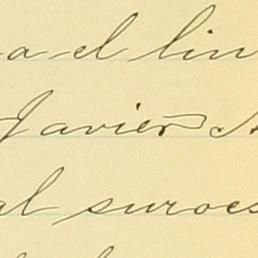 a el lin
Javier A
al suroes